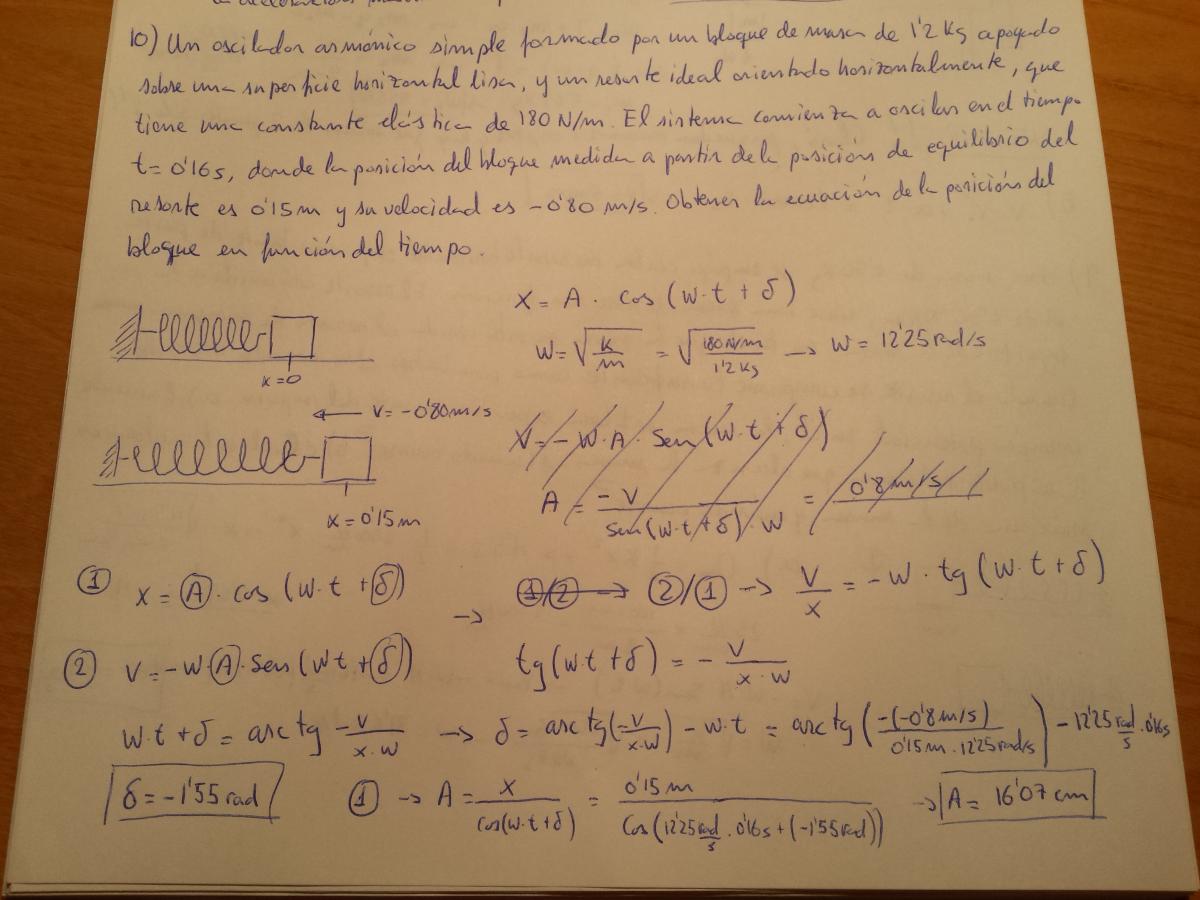 10) Un oscilador armónico simple formado por un bloque de masa de 1'2 Kg apoyado
sobre una superficie horizontal lisa, y un resorte ideal orientado horizontalmente, que
tiene una constante elástica de 180 N/m. El sistema comienza a oscilar en el tiempo
t = 0'16 s, donde la posición del bloque medida a partir de la posición de equilibrio del
resorte es 0'15 m y su velocidad es -0'80 m/s. Obtener la ecuación de la posición del
bloque en función del tiempo.
x = A · cos (w·t + δ)
w = √(K/m) = √(180 N/m / 1'2 Kg) → w = 12'25 rad/s
x = 0
← v = -0'80 m/s
x = 0'15 m
V = - W·A · sen (w·t + δ)
A = -V / (sen(w·t + δ)·w) = 0'8 m/s /
① x = A · cos (w·t + δ) → ①/② → ②/① → v/x = -w · tg (w·t + δ)
② v = -w·A · sen (wt + δ) tg (w·t + δ) = - v/(x·w)
w·t + δ = arc tg -v/(x·w) → δ = arc tg (-v/(x·w)) - w·t = arc tg (-(-0'8 m/s) / (0'15 m · 12'25 rad/s)) - 12'25 rad/s · 0'16s
δ = -1'55 rad ① → A = x / cos(w·t + δ) = 0'15 m / cos(12'25 rad/s · 0'16s + (-1'55 rad)) → A = 16'07 cm